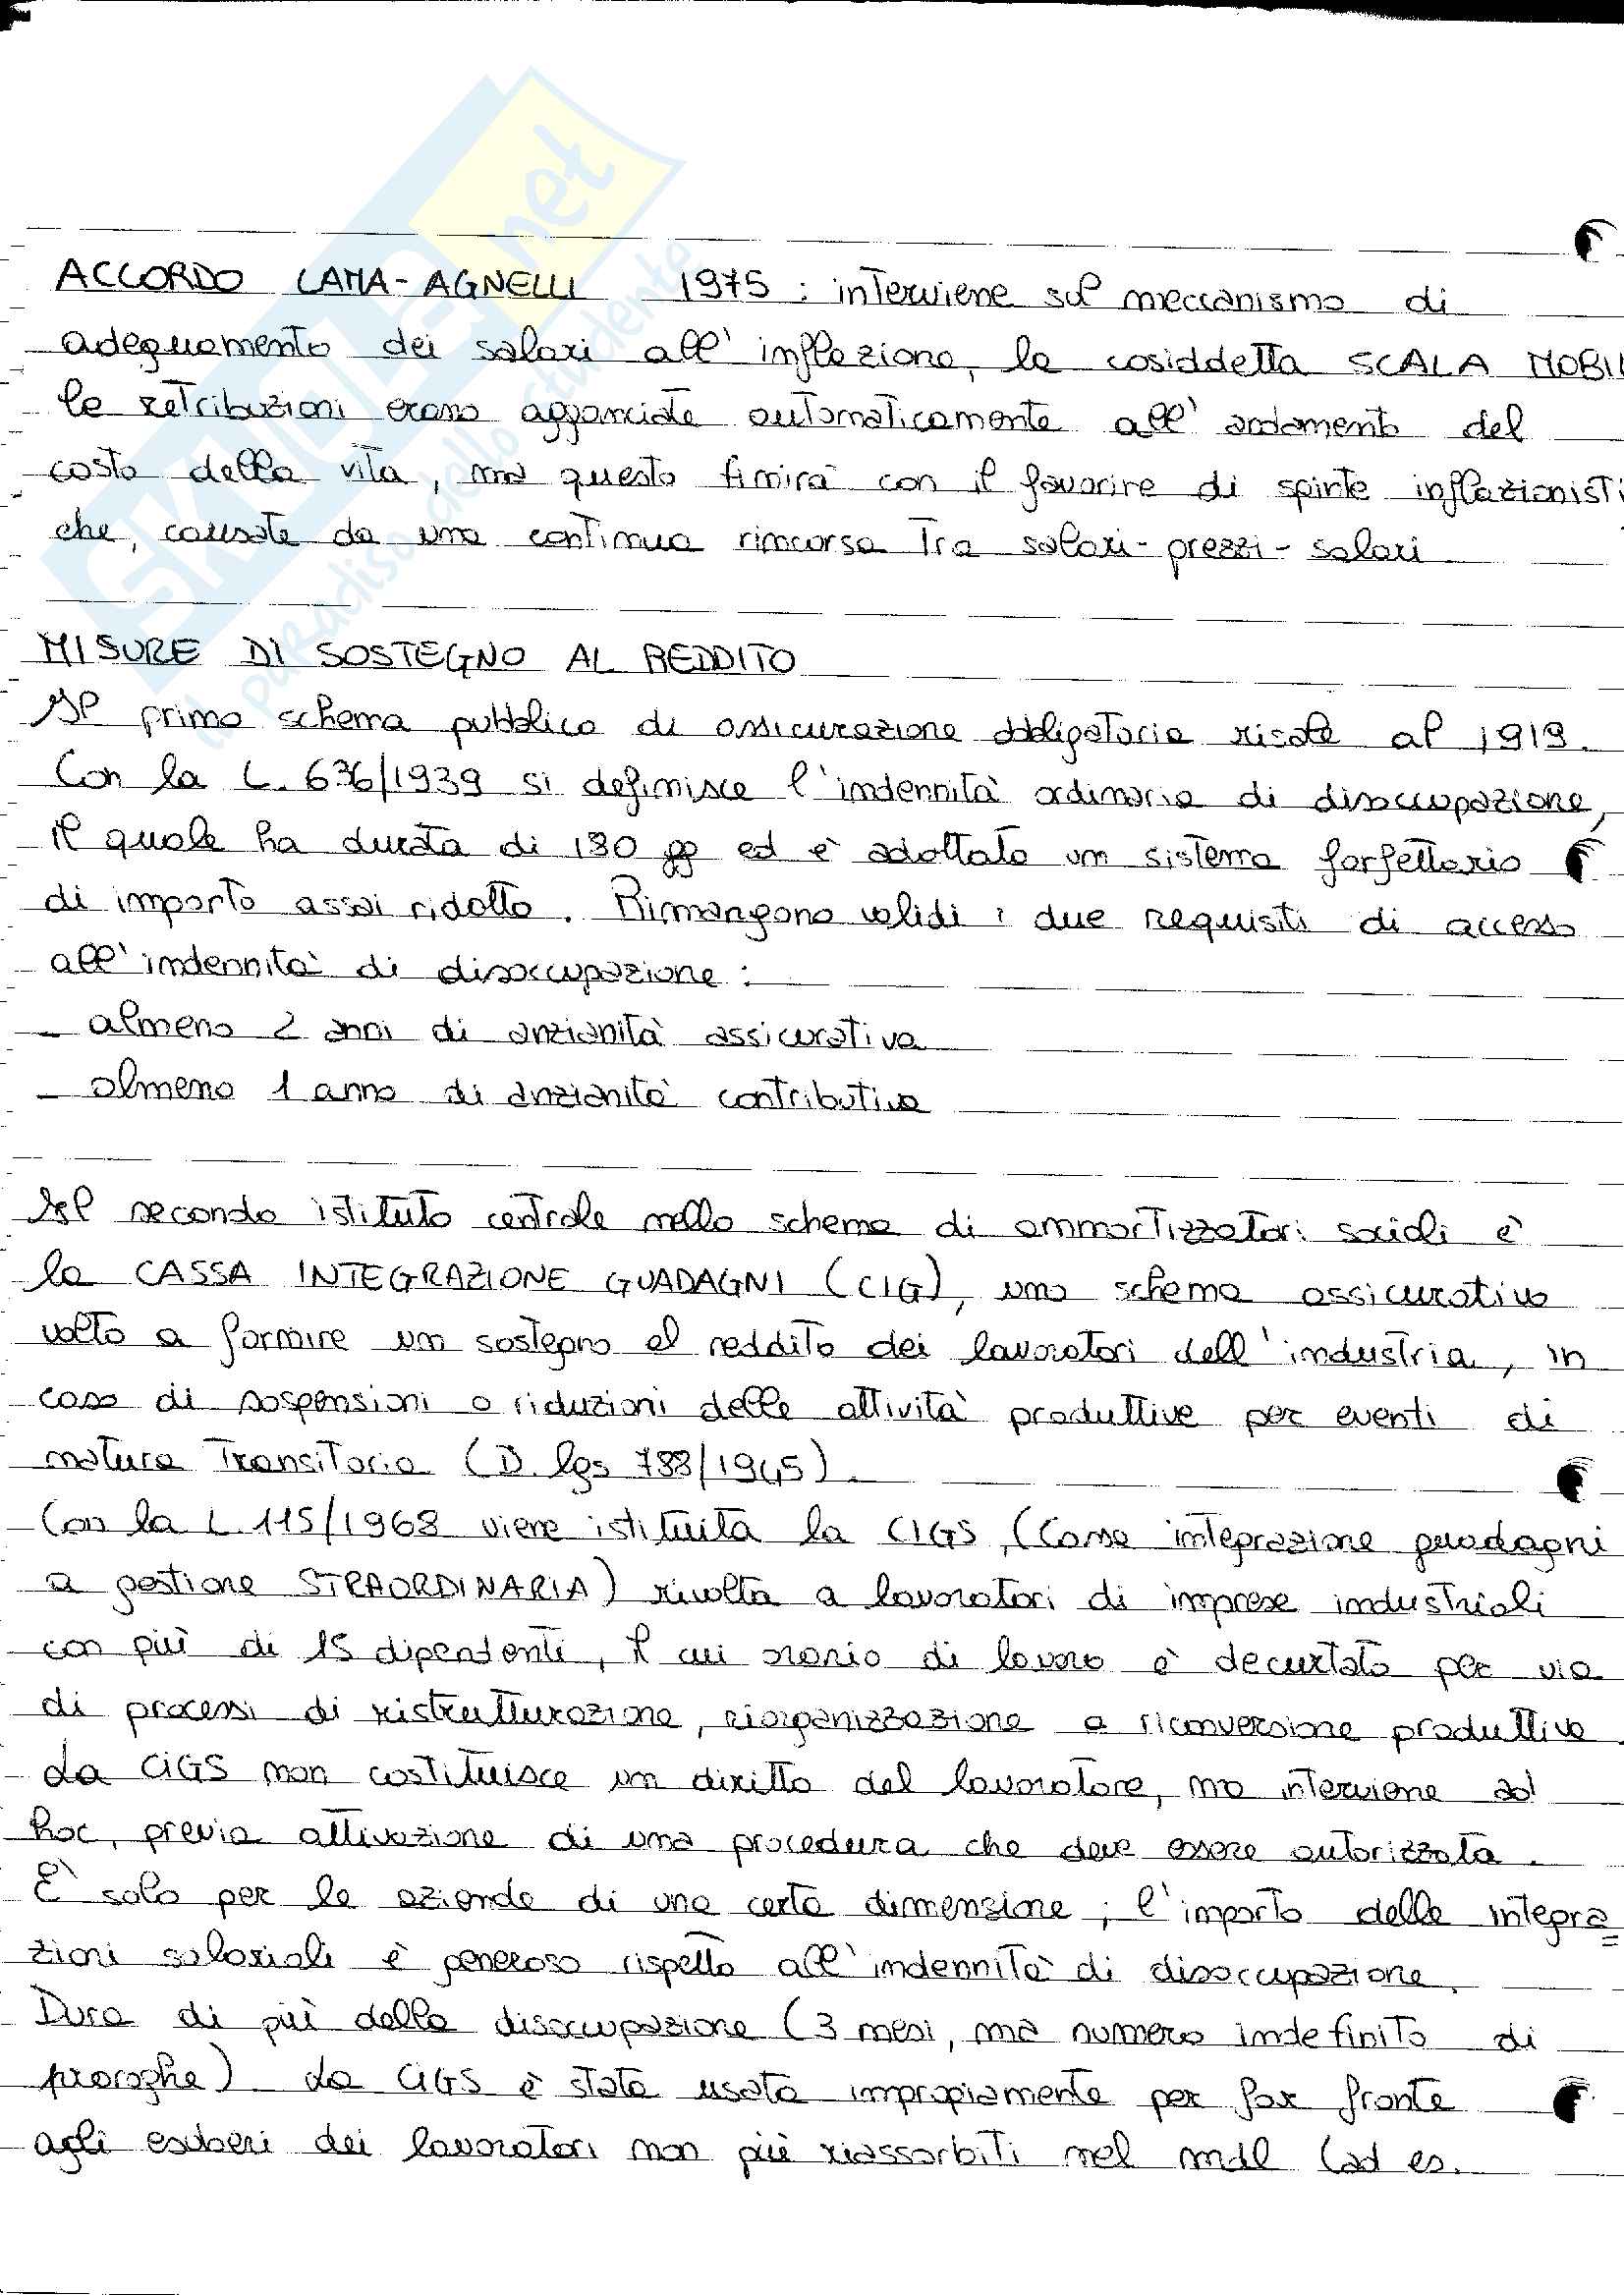 SKUOLA.net
il paradiso dello studente
ACCORDO LAMA-AGNELLI 1975 : interviene sul meccanismo di
adeguamento dei salari all'inflazione, la cosiddetta SCALA MOBIL
le retribuzioni erano agganciate automaticamente all'andamento del
costo della vita, ma questo finirà con il favorire di spinte inflazionisti
che, causate da una continua rincorsa tra salari-prezzi-salari
MISURE DI SOSTEGNO AL REDDITO
Il primo schema pubblico di assicurazione obbligatoria risale al 1919.
Con la L. 636/1939 si definisce l'indennità ordinaria di disoccupazione,
il quale ha durata di 180 gg ed è adottato un sistema forfettario
di importo assai ridotto. Rimangono validi i due requisiti di accesso
all'indennità di disoccupazione :
- almeno 2 anni di anzianità assicurativa
- almeno 1 anno di anzianità contributiva
Il secondo istituto centrale nello schema di ammortizzatori sociali è
la CASSA INTEGRAZIONE GUADAGNI (CIG), uno schema assicurativo
volto a fornire un sostegno al reddito dei lavoratori dell'industria, in
caso di sospensioni o riduzioni delle attività produttive per eventi di
natura transitoria (D. lgs 788/1945).
Con la L. 115/1968 viene istituita la CIGS, (Cassa integrazione guadagni
a gestione STRAORDINARIA) rivolta a lavoratori di imprese industriali
con più di 15 dipendenti, il cui orario di lavoro è decurtato per via
di processi di ristrutturazione, riorganizzazione o riconversione produttiva.
La CIGS non costituisce un diritto del lavoratore, ma interviene ad
hoc, previa attivazione di una procedura che deve essere autorizzata.
È solo per le aziende di una certa dimensione; l'importo delle integra=
zioni salariali è generoso rispetto all'indennità di disoccupazione.
Dura di più della disoccupazione (3 mesi, ma numero indefinito di
proroghe). La CIGS è stata usata impropriamente per far fronte
agli esuberi dei lavoratori non più riassorbiti nel mdl (ad es.